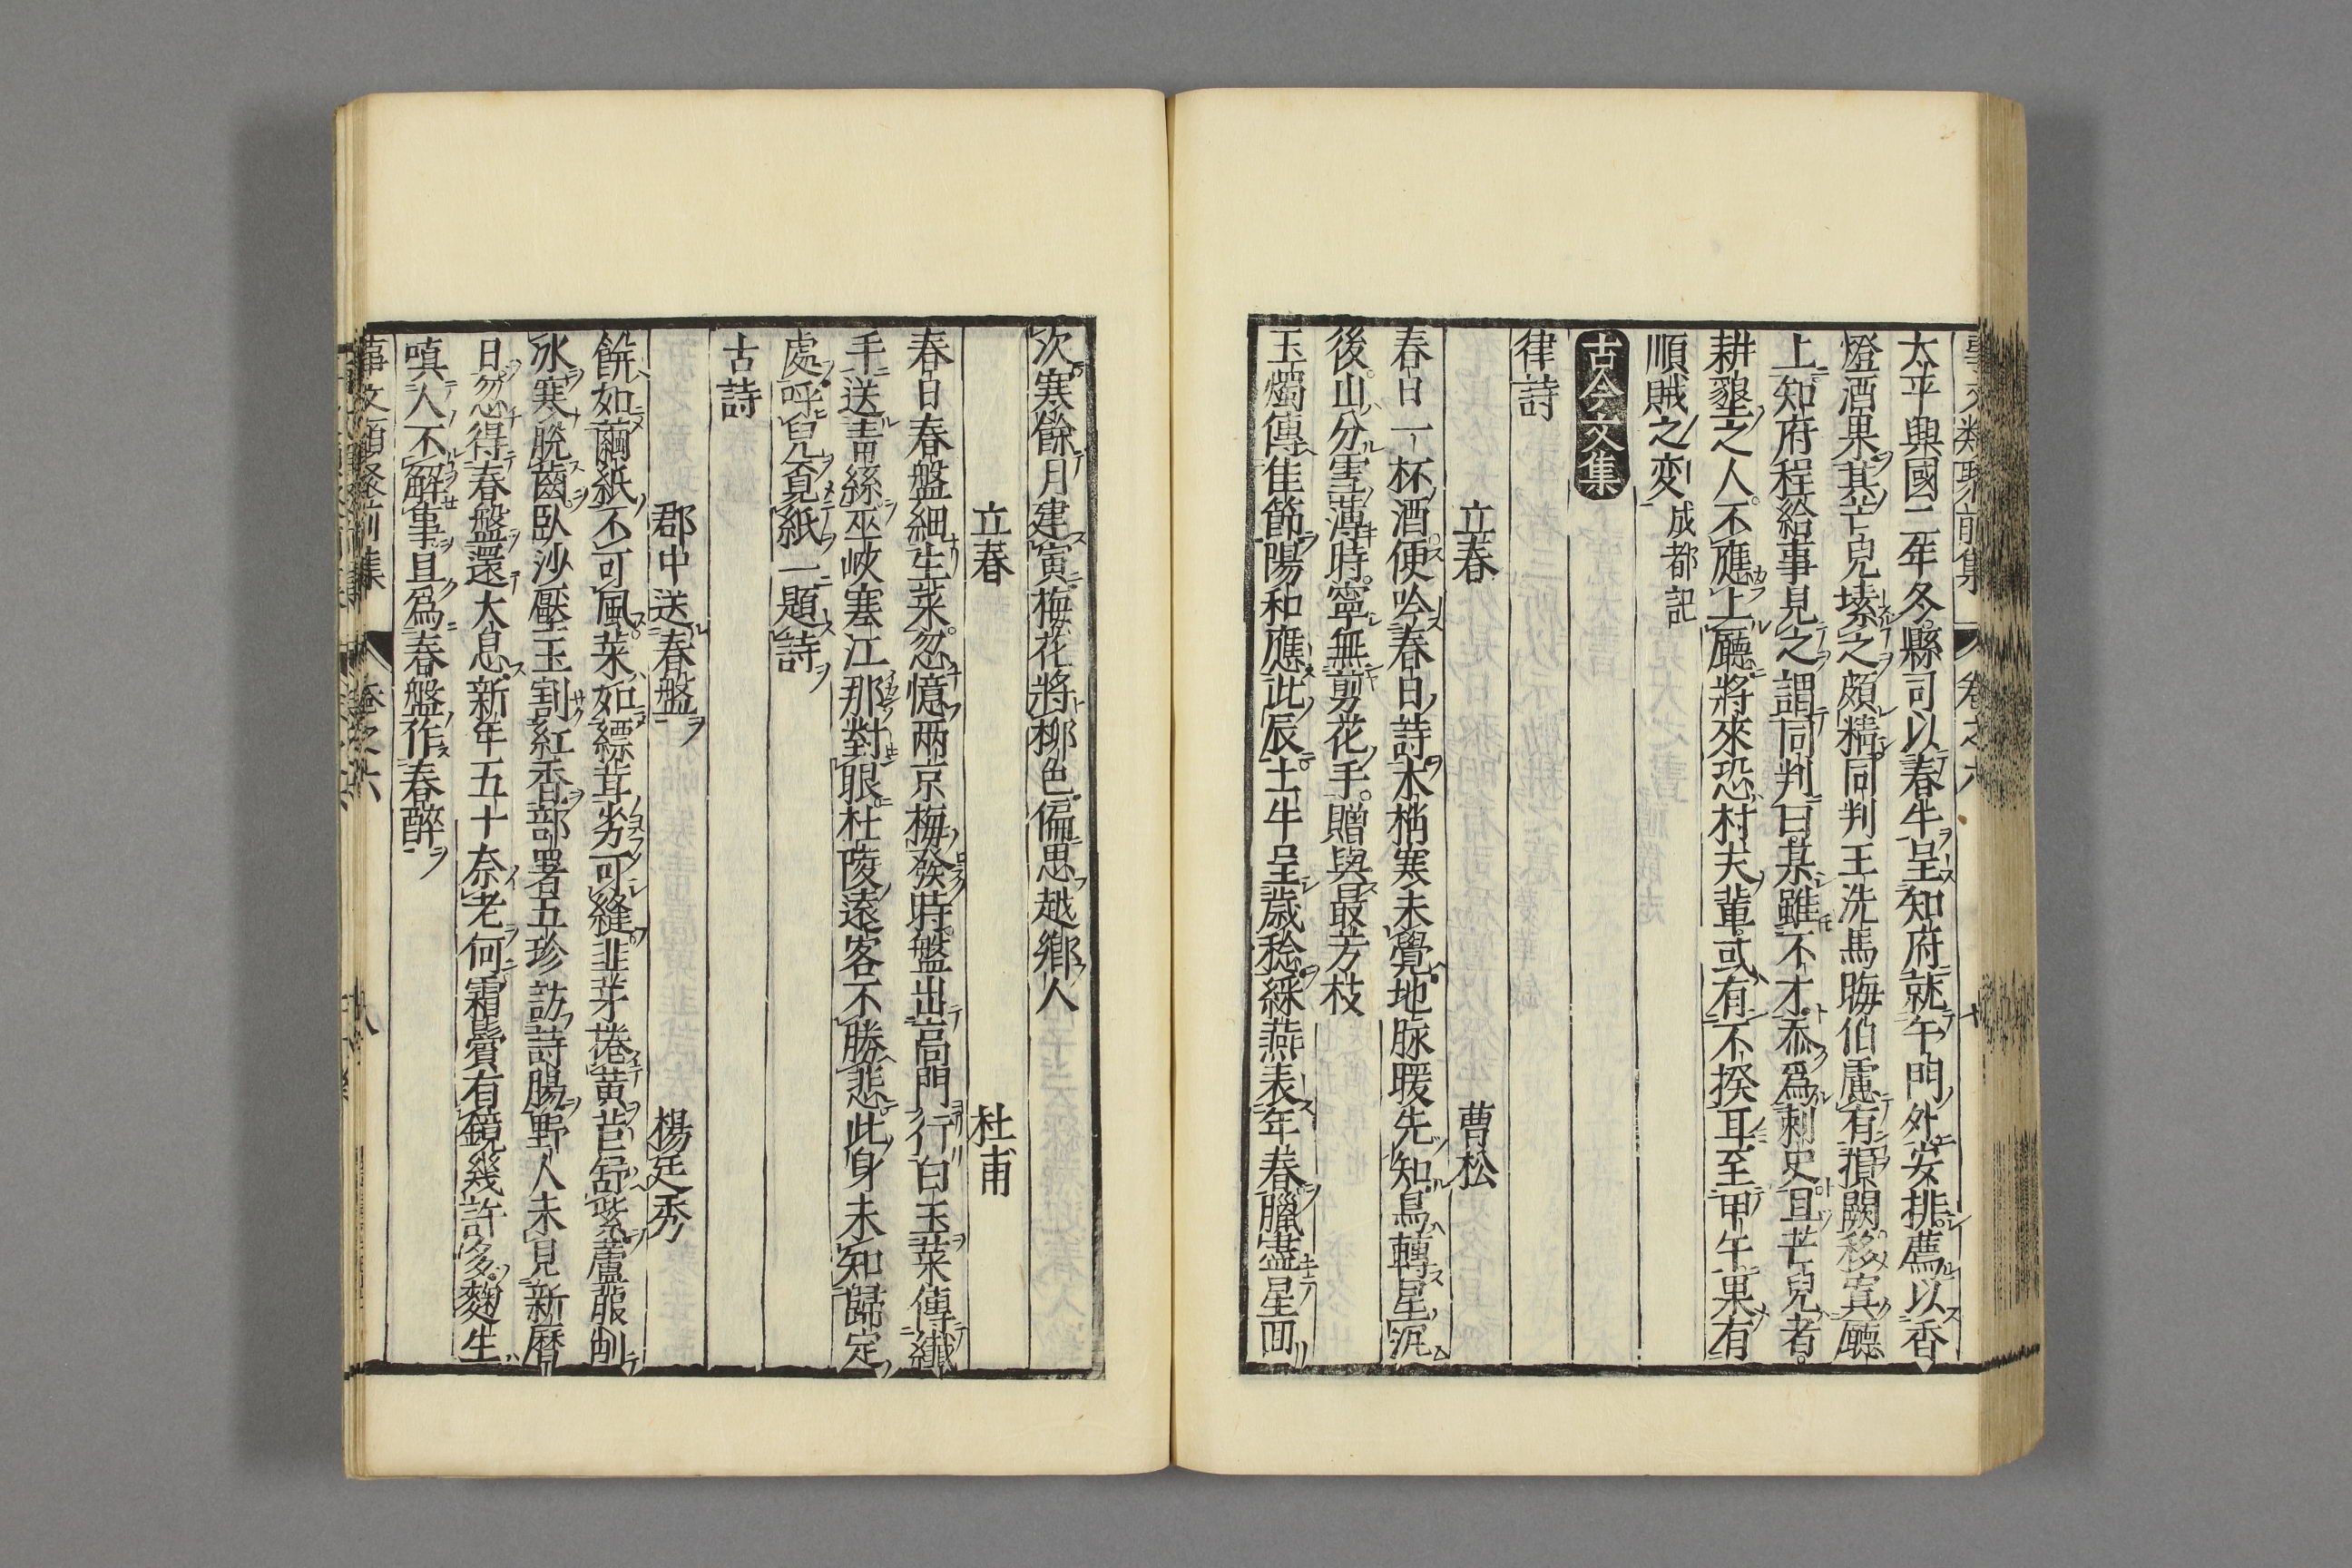 太平興國二年冬縣司以春牛呈知府就午門外安排薦以香
燈酒果其芒兒塐之頗精同判王洗馬晦伯慮有損闕移寘廳
上知府程給事見之謂同判曰某雖不才忝爲刺史且芒兒者
耕墾之人不應上廳將來恐村夫輩或有不揆耳至甲午果有
順賊之変 成都記
古今文集
律詩
立春 曹松
春日一杯酒便吟春日詩木梢寒未覺地脉暖先知鳥囀星沉
後山分雪薄時寧無剪花手贈與最芳枝
玉燭傳佳節陽和應此辰土牛呈歲稔綵燕表年春臘盡星回
次寒餘月建寅梅花將柳色偏思越鄉人
立春 杜甫
春日春盤細生菜忽憶兩京梅發時盤出高門行白玉菜傳纖
手送青絲巫峽寒江那對眼杜陵遠客不勝悲此身未知歸定
處呼兒覓紙一題詩
古詩
郡中送春盤 楊廷秀
餅如繭紙不可風菜如縹茸劣可縫韭芽捲黃苣舒紫蘆菔削
氷寒脫齒臥沙壓玉割紅香部署五珍訪詩腸野人未見新曆
日忽得春盤還太息新年五十奈老何霜鬢有鏡幾許多麴生
嗔人不解事且爲春盤作春醉
事文類聚前集 卷之六 八